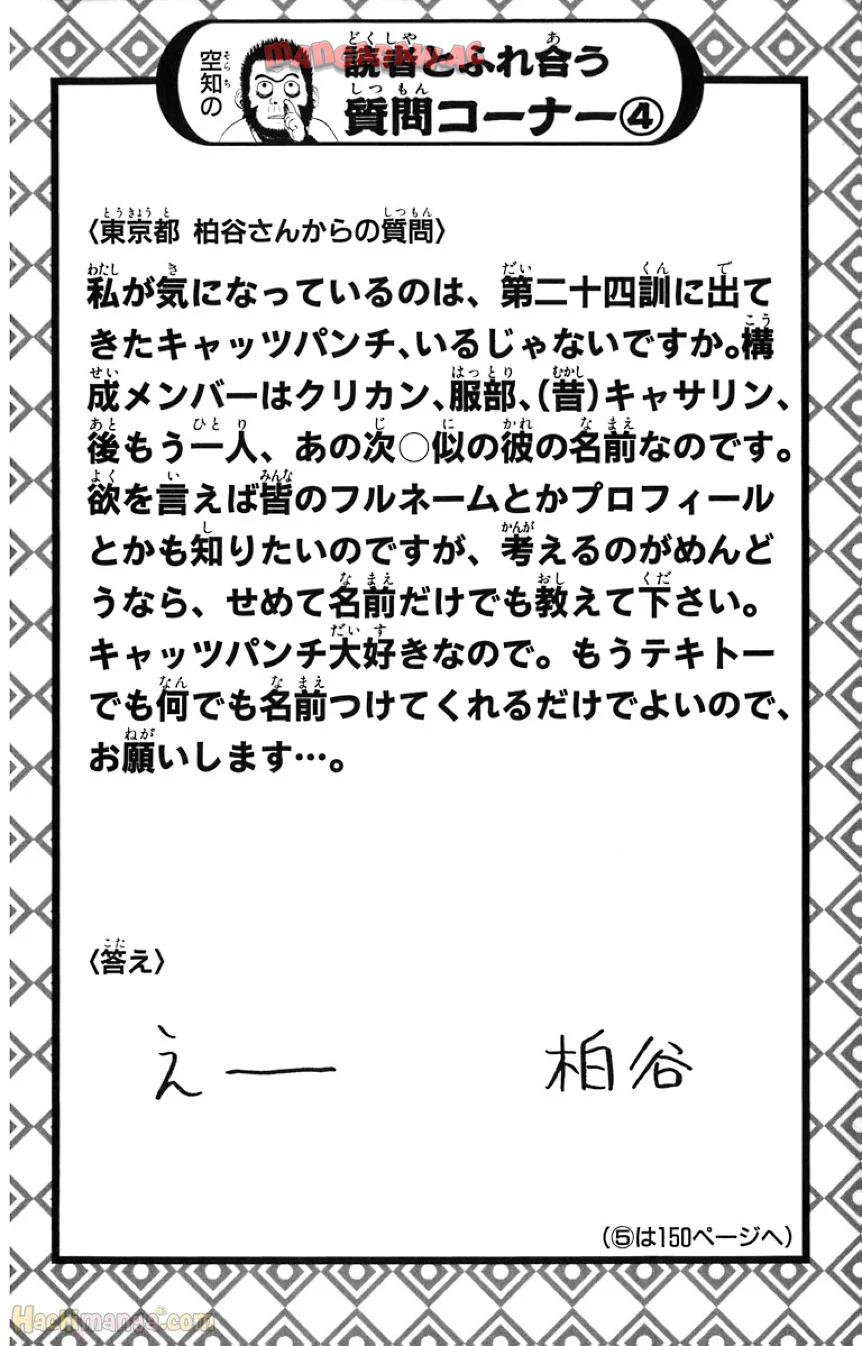 空知の
読者とふれ合う
質問コーナー④
MANGARAW.AC
〈東京都 柏谷さんからの質問〉
私が気になっているのは、第二十四訓に出て
きたキャッツパンチ、いるじゃないですか。構
成メンバーはクリカン、服部、(昔)キャサリン、
後もう一人、あの次○似の彼の名前なのです。
欲を言えば皆のフルネームとかプロフィール
とかも知りたいのですが、考えるのがめんど
うなら、せめて名前だけでも教えて下さい。
キャッツパンチ大好きなので。もうテキトー
でも何でも名前つけてくれるだけでよいので、
お願いします…。
〈答え〉
えー 柏谷
(⑤は150ページへ)
Hachimanga.com